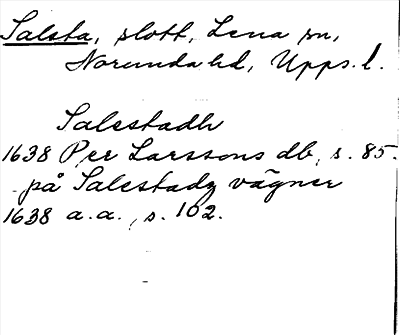 Salsta, slott, Lena sn,
Norunda hd, Upps. l.
Salestadh
1638 Per Larssons db, s. 85.
på Salestadz vägner
1638 a.a., s. 102.